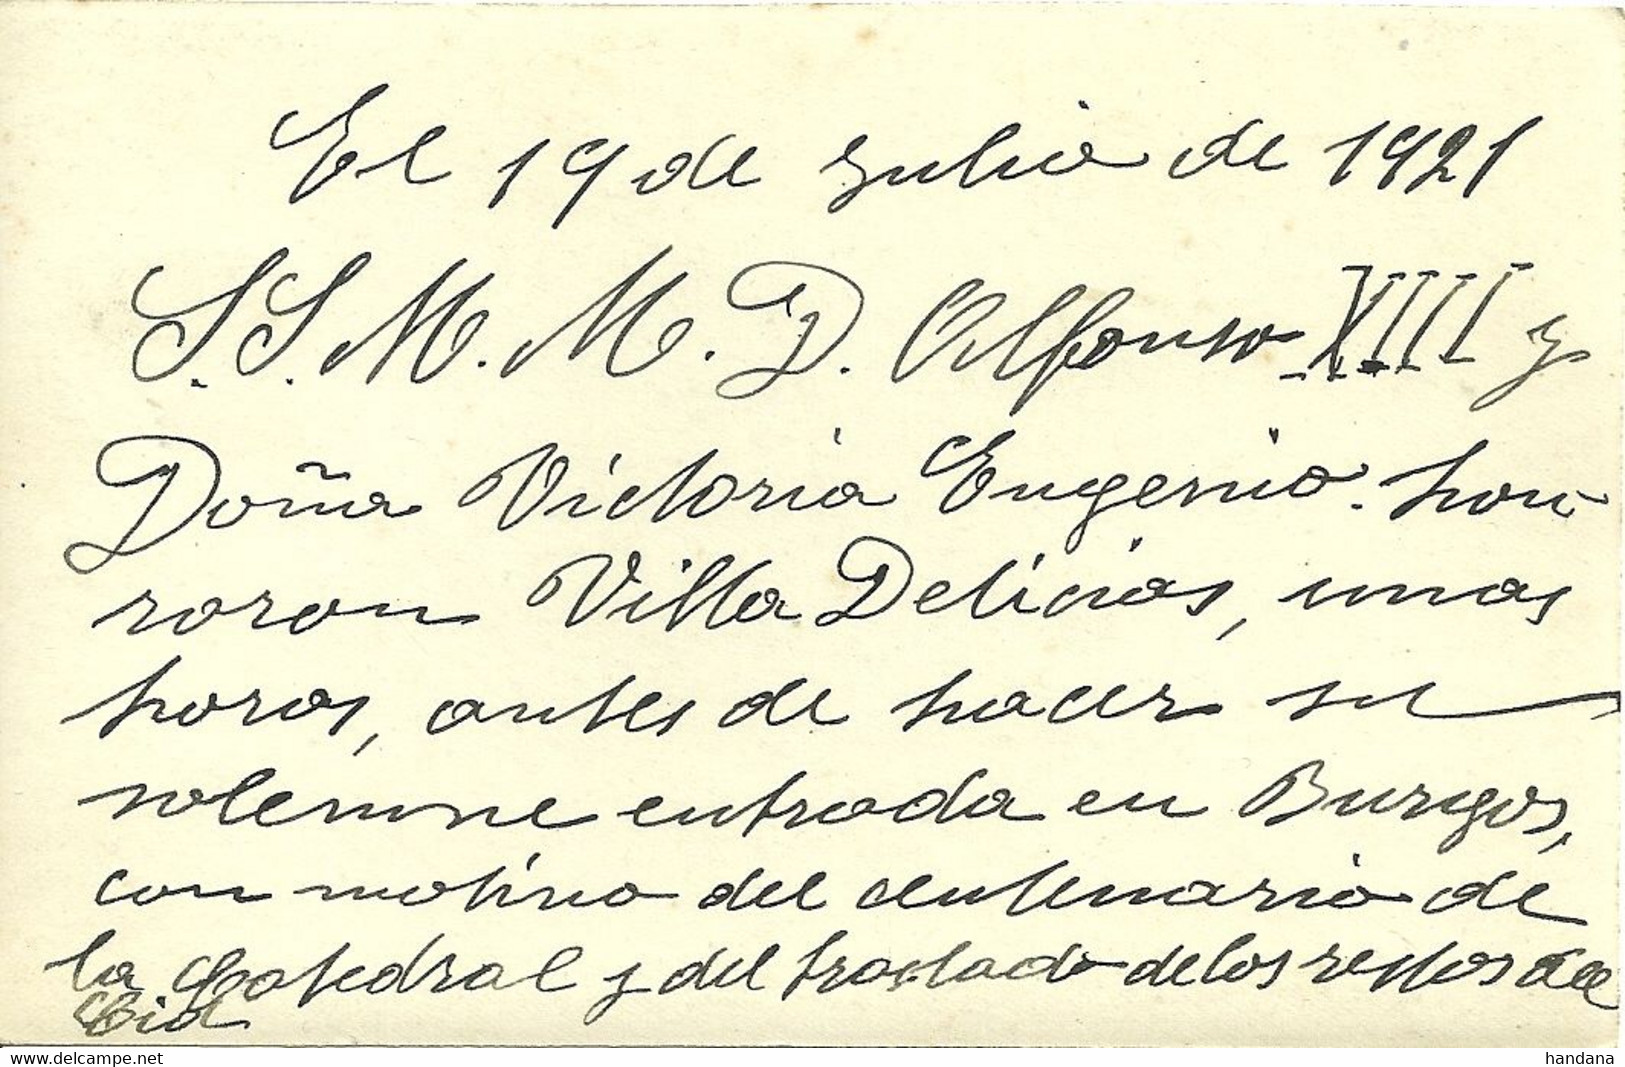 El 19 de Julio de 1921
S.S.M.M. D. Alfonso XIII y
Doña Victoria Eugenia. hon-
raron Villa Delicias, unas
horas, antes de hacer su
solemne entrada en Burgos,
con motivo del centenario de
la Catedral y del traslado de los restos del
Cid
www.delcampe.net
handana